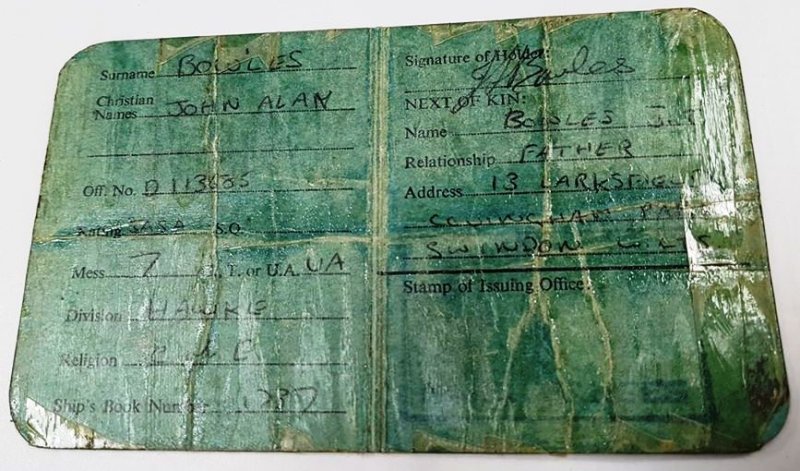 Surname BOWLES
Christian
Names JOHN ALAN
Off. No. D 113685
Rating S.O.
Mess 7 G., T. or U.A. UA
Division HAWKE
Religion C
Ship's Book Number 1787
Signature of Holder:
Bowles
NEXT OF KIN:
Name BOWLES J.T
Relationship FATHER
Address 13 LARKSFIELD
COVINGHAM PARK
SWINDON WILTS
Stamp of Issuing Office: